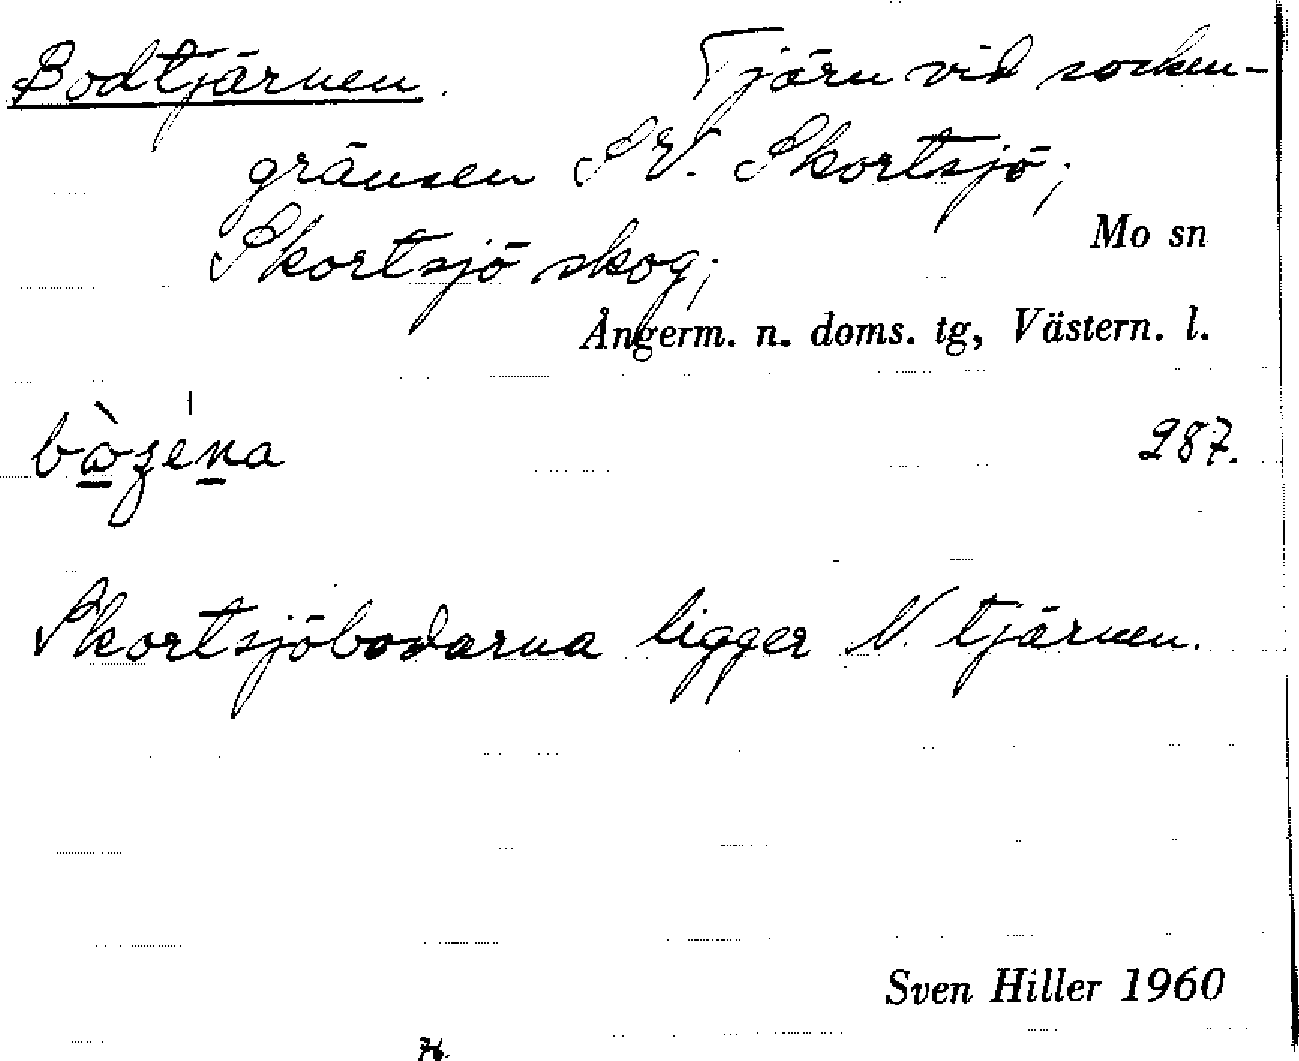 Bodtjärnen. Tjärn vid socken-
gränsen SV. Skortsjö;
Skortsjö skog; Mo sn
Ångerm. n. doms. tg, Västern. l.
287.
Skortsjöbodarna ligger N. tjärnen.
Sven Hiller 1960